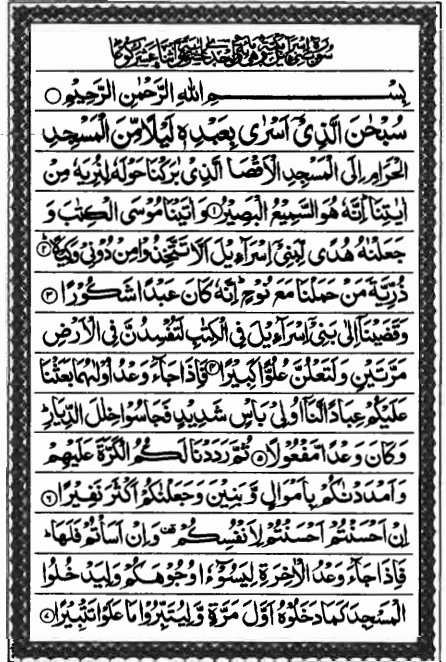 سورة بنى اسرآءيل مكية وهى مائة واحدى عشرة اية واثنا عشر ركوعا
بِسْمِ اللهِ الرَّحْمٰنِ الرَّحِيْمِ ○
سُبْحٰنَ الَّذِىْٓ اَسْرٰى بِعَبْدِهٖ لَيْلًا مِّنَ الْمَسْجِدِ
الْحَرَامِ اِلَى الْمَسْجِدِ الْاَقْصَا الَّذِىْ بٰرَكْنَا حَوْلَهٗ لِنُرِيَهٗ مِنْ
اٰيٰتِنَا ؕ اِنَّهٗ هُوَ السَّمِيْعُ الْبَصِيْرُ ۝۱ وَ اٰتَيْنَا مُوْسَى الْكِتٰبَ وَ
جَعَلْنٰهُ هُدًى لِّبَنِىْٓ اِسْرَآءِيْلَ اَلَّا تَتَّخِذُوْا مِنْ دُوْنِىْ وَكِيْلًا ۝۲
ذُرِّيَّةَ مَنْ حَمَلْنَا مَعَ نُوْحٍ ؕ اِنَّهٗ كَانَ عَبْدًا شَكُوْرًا ۝۳
وَ قَضَيْنَآ اِلٰى بَنِىْٓ اِسْرَآءِيْلَ فِى الْكِتٰبِ لَتُفْسِدُنَّ فِى الْاَرْضِ
مَرَّتَيْنِ وَ لَتَعْلُنَّ عُلُوًّا كَبِيْرًا ۝۴ فَاِذَا جَآءَ وَعْدُ اُوْلٰىهُمَا بَعَثْنَا
عَلَيْكُمْ عِبَادًا لَّنَآ اُولِىْ بَاْسٍ شَدِيْدٍ فَجَاسُوْا خِلٰلَ الدِّيَارِ ؕ
وَ كَانَ وَعْدًا مَّفْعُوْلًا ۝۵ ثُمَّ رَدَدْنَا لَكُمُ الْكَرَّةَ عَلَيْهِمْ
وَ اَمْدَدْنٰكُمْ بِاَمْوَالٍ وَّ بَنِيْنَ وَ جَعَلْنٰكُمْ اَكْثَرَ نَفِيْرًا ۝۶
اِنْ اَحْسَنْتُمْ اَحْسَنْتُمْ لِاَنْفُسِكُمْ ۫ وَ اِنْ اَسَاْتُمْ فَلَهَا ؕ
فَاِذَا جَآءَ وَعْدُ الْاٰخِرَةِ لِيَسُوْٓءٗا وُجُوْهَكُمْ وَ لِيَدْخُلُوا
الْمَسْجِدَ كَمَا دَخَلُوْهُ اَوَّلَ مَرَّةٍ وَّ لِيُتَبِّرُوْا مَا عَلَوْا تَتْبِيْرًا ۝۷